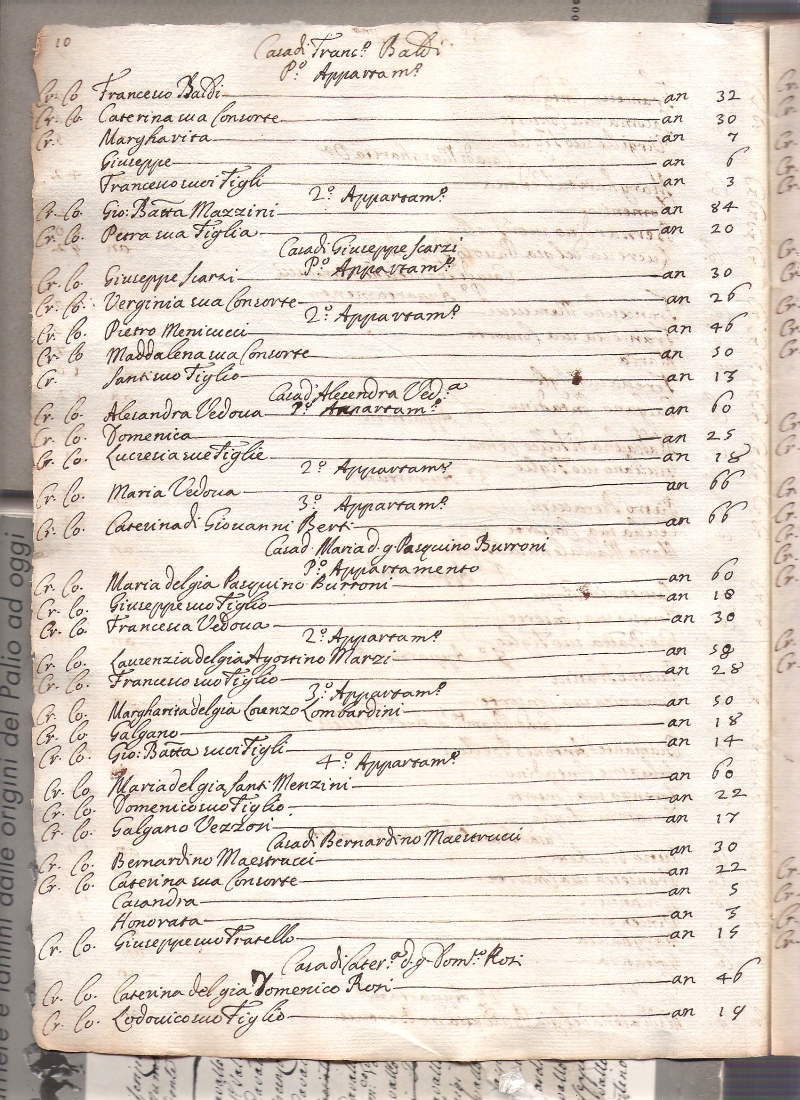 10
Casa di Franc.º Baldi
P.º Appartam.º
Cr. Co Francesco Baldi an 32
Cr. Co. Caterina sua Consorte an 30
Cr. Margharita an 7
Giuseppe an 6
Francesco suoi Figli an 3
2.º Appartam.º
Cr. Co. Gio: Batta Mazzini an 84
Cr. Co. Petra sua Figlia an 20
Casa di Giuseppe Scarzi
P.º Appartam.º
Cr. Co. Giuseppe Scarzi an 30
Cr. Co. Verginia sua Consorte an 26
2.º Appartam.º
Cr. Co. Pietro Menicucci an 46
Cr. Co Maddalena sua Consorte an 50
Cr. Santi suo Figlio an 13
Casa d'Alesandra Ved.ª
P.º Appartam.º
Cr. Co. Alesandra Vedova an 60
Cr. Co. Domenica an 25
Cr. Co. Lucresia sue Figlie an 18
2.º Appartam.º
Cr. Co. Maria Vedova an 66
3.º Appartam.º
Cr. Co. Caterina di Giovanni Berti an 66
Casa d. Maria d. g. Pasquino Burroni
P.º Appartamento
Cr. Co. Maria del gia Pasquino Burroni an 60
Cr. Co. Giuseppe suo Figlio an 18
Cr. Co. Francesca Vedova an 30
2.º Appartam.º
Cr. Co. Laurenzia del gia Agostino Marzi an 58
Cr. Co. Francesco suo Figlio an 28
3.º Appartam.º
Cr. Co. Margharita del gia Lorenzo Lombardini an 50
Cr. Co Galgano an 18
Cr. Co. Gio: Batta suoi Figli an 14
4.º Appartam.º
Cr. Co. Maria del gia Santi Menzini an 60
Cr. Co. Domenico suo Figlio an 22
Cr. Co. Galgano Vezzosi an 17
Casa di Bernardino Maestrucci
Cr. Co. Bernardino Maestrucci an 30
Cr. Co. Caterina sua Consorte an 22
Casandra an 5
Honorata an 3
Cr. Co. Giuseppe suo Fratello an 15
Casa di Cater.ª d. g. Dom.co Rosi
Cr. Co. Caterina del gia Domenico Rosi an 46
Cr. Co. Lodovico suo Figlio an 19
dalle origini del Palio ad oggi